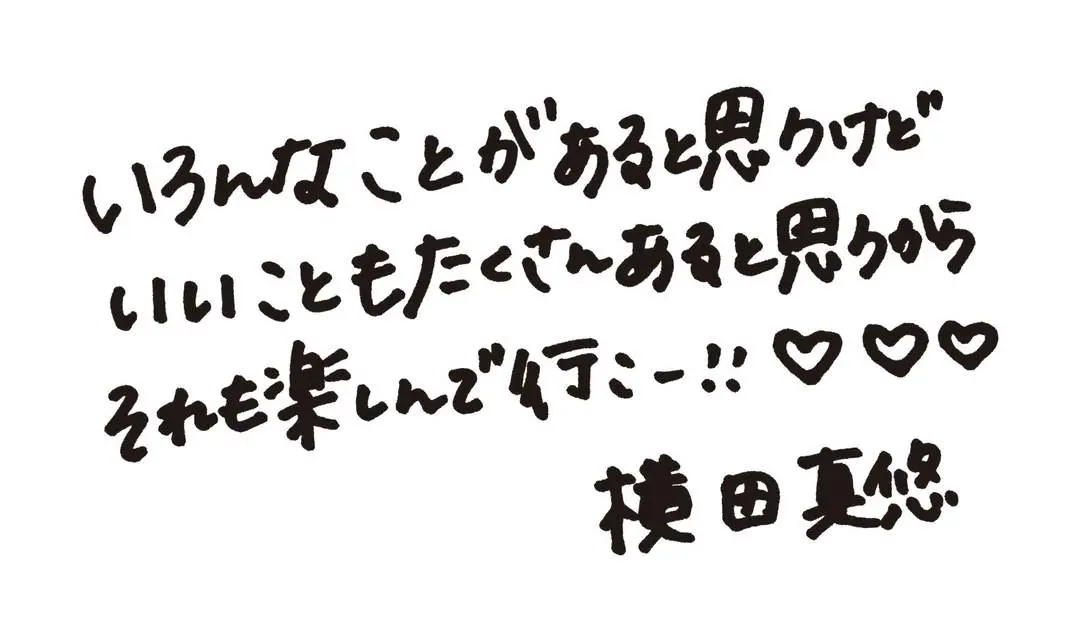 いろんなことがあると思うけど
いいこともたくさんあると思うから
それも楽しんで行こー!! ♡♡♡
横田真悠